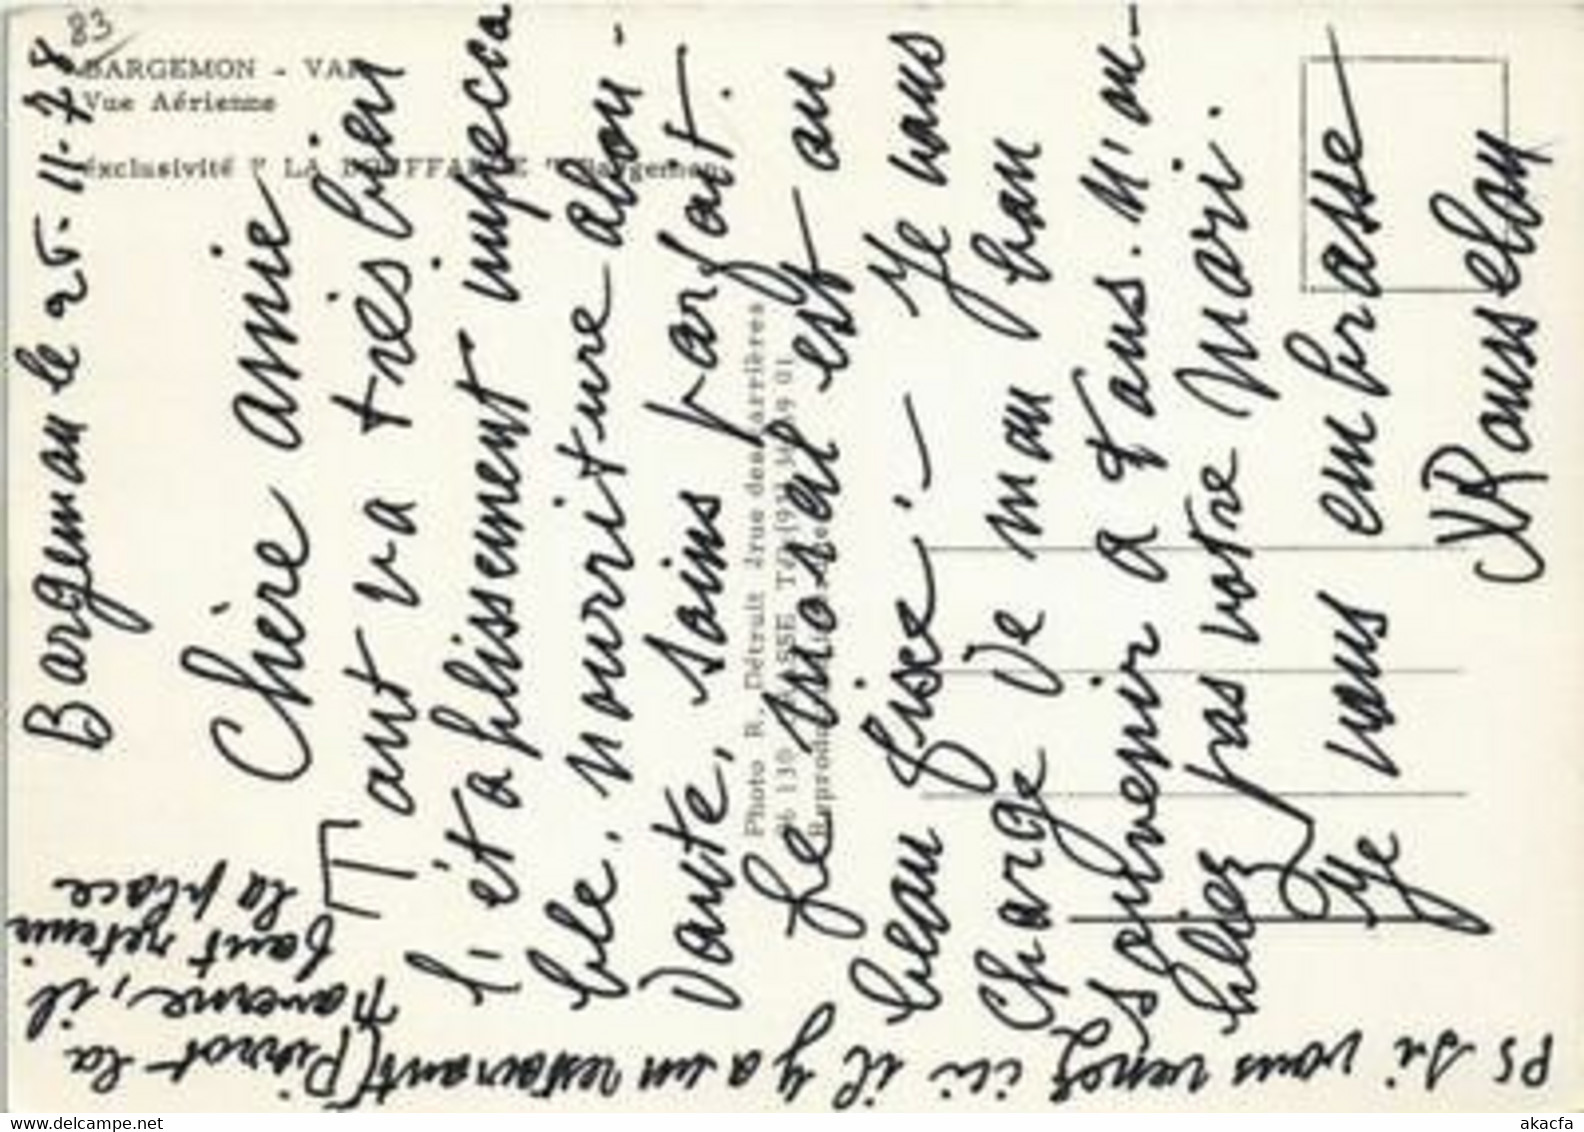 83
BARGEMON - VAR
Vue Aérienne
éxclusivité " LA BOUFFARDE " Bargemon
Photo R. Détruit 2rue des Carrières
06 130 GRASSE Tél (93) 36 49 01
Bargeman le 25-11-78
Chère amie
Tout va très bien
l'établissement impecca
ble. nourriture abon-
dante, soins parfait.
Le moral est au
beau fixe. - Je vous
charge de mon bon
souvenir à tous. N'ou-
bliez pas votre Mari.
Je vous embrasse
Rousselou
PS si vous venez ici il y a un restaurant (Pierrot la
Taverne, il
faut retenir
la place
akacfa